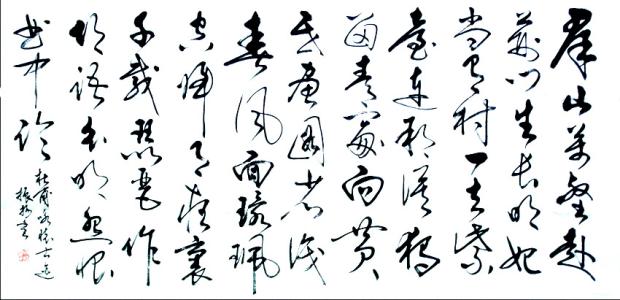 群山萬壑赴
荆门生长明妃
尚有村一去紫
臺連朔漠獨
留青冢向黄
昏畫圖省識
春風面環珮
空歸月夜魂
千載琵琶作
胡語分明怨恨
曲中論
杜甫詠懷古迹